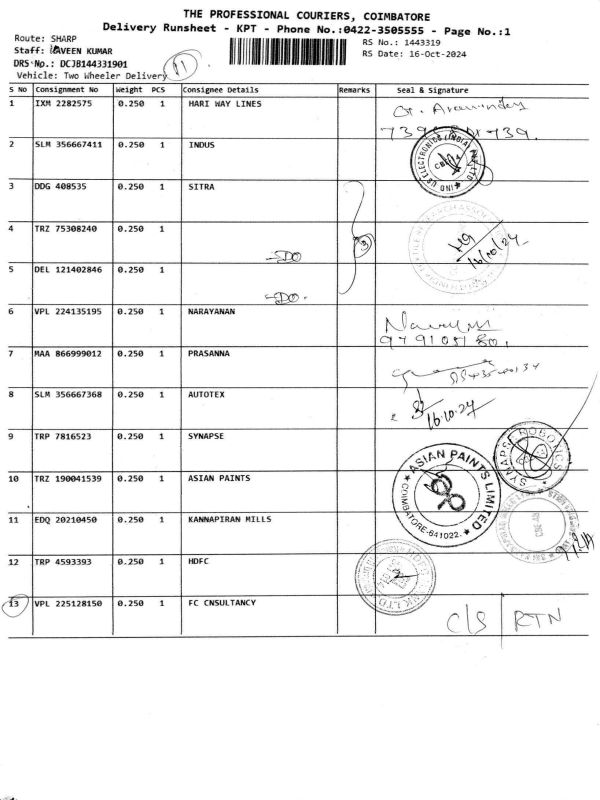 THE PROFESSIONAL COURIERS, COIMBATORE
Delivery Runsheet - KPT - Phone No.:0422-3505555 - Page No.:1
Route: SHARP
RS No.: 1443319
Staff: NAVEEN KUMAR
RS Date: 16-Oct-2024
DRS No.: DCJB144331901
11
Vehicle: Two Wheeler Delivery
S No Consignment No Weight PCS Consignee Details Remarks Seal & Signature
1 IXM 2282575 0.250 1 HARI WAY LINES
2 SLM 356667411 0.250 1 INDUS
IND US ELECTRONICS (INDIA) PVT LTD
3 DDG 408535 0.250 1 SITRA
4 TRZ 75308240 0.250 1
-SDO
16/10/24
5 DEL 121402846 0.250 1
-SDO-
6 VPL 224135195 0.250 1 NARAYANAN
7 MAA 866999012 0.250 1 PRASANNA
8 SLM 356667368 0.250 1 AUTOTEX
16.10.24
9 TRP 7816523 0.250 1 SYNAPSE
SYNAPSE ROBONICS
10 TRZ 190041539 0.250 1 ASIAN PAINTS
ASIAN PAINTS LIMITED
COIMBATORE-641022.
11 EDQ 20210450 0.250 1 KANNAPIRAN MILLS
12 TRP 4593393 0.250 1 HDFC
13 VPL 225128150 0.250 1 FC CNSULTANCY
C/S RTN